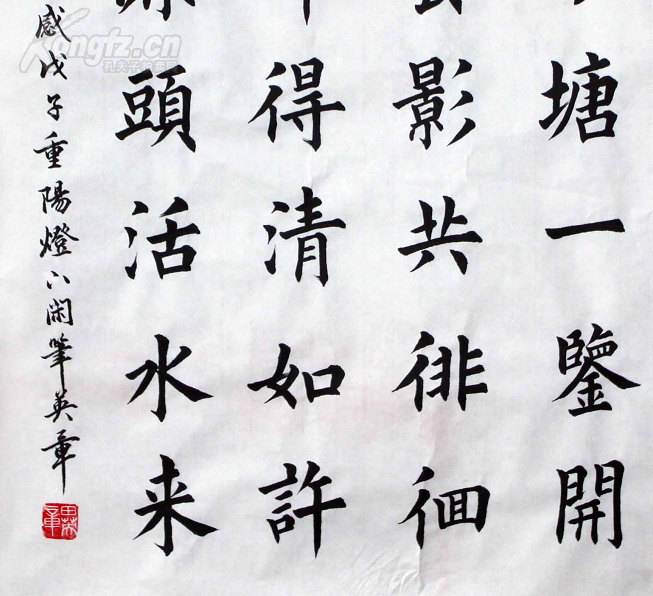 塘一鑒開
影共徘徊
得清如許
頭活水来
感戊子重陽燈下閑筆英章
Kongfz.cn